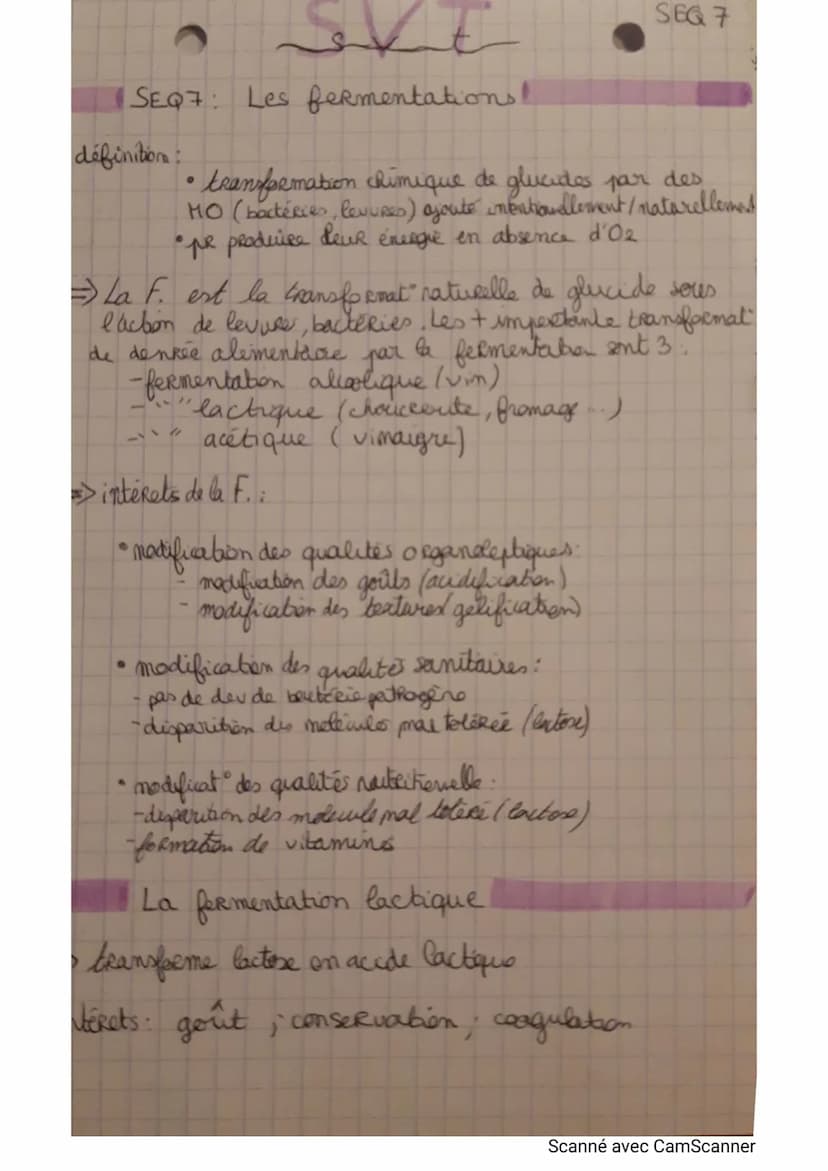 SVT
SEQ 7
svt
SEQ7 : Les fermentations
définition :
• transformation chimique de glucides par des
MO (bactéries, levures) ajouté intentionellement/naturellement
• pr produire leur énergie en absence d'O2
=> La F. est la transformat° naturelle de glucide sous
l'action de levure, bactéries. Les + importante transformat°
de denrée alimentaire par la fermentation sont 3 :
- fermentation alcoolique (vin)
- " " lactique (choucroute, fromage ...)
- " " acétique ( vinaigre)
=> intérets de la F. :
• modification des qualités organoleptiques :
- modification des goûts (acidification)
- modification des textures (gélification)
• modification des qualités sanitaires :
- pas de dev de bactérie pathogène
- disparition des molécules mal tolérée (lactose)
• modificat° des qualités nutritionnelle :
- disparition des molecule mal toléré (lactose)
- formation de vitamines
La fermentation lactique
transforme lactose en acide lactique
térets : goût ; conservation ; coagulation
Scanné avec CamScanner